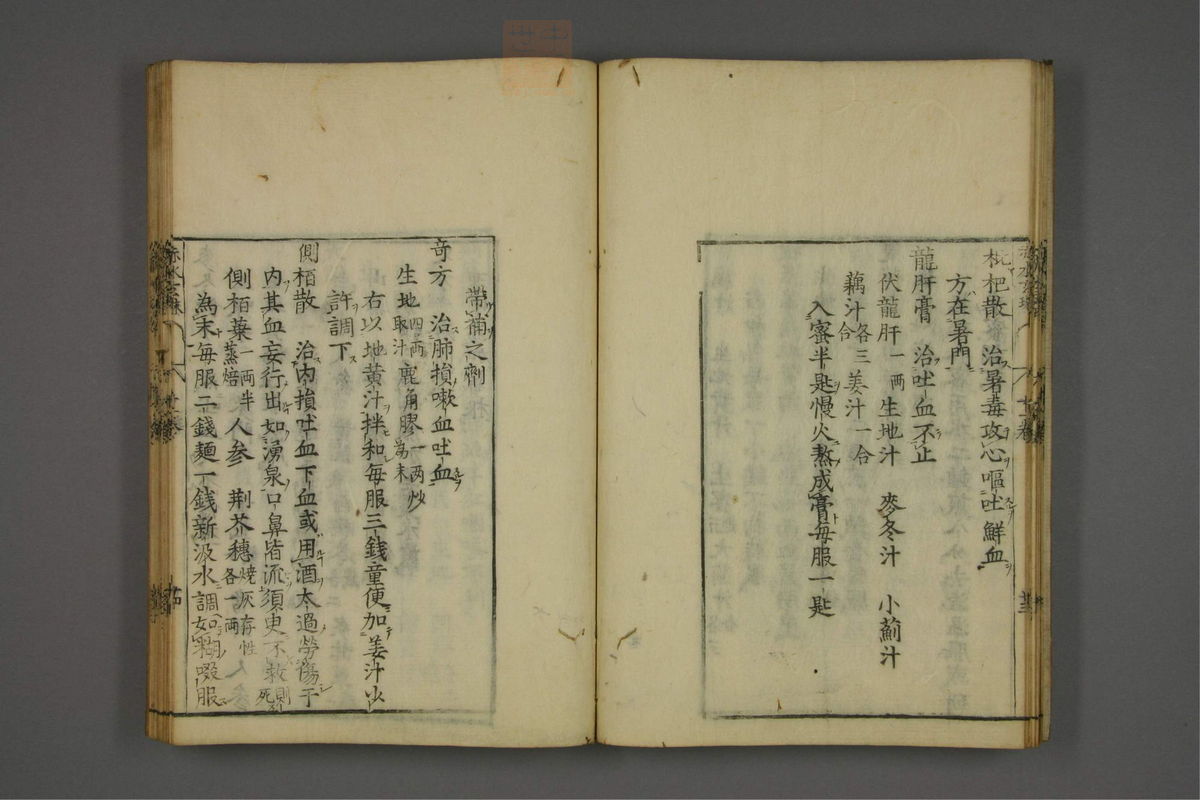 枇杷散 治暑毒攻心嘔吐鮮血
方在暑門
龍肝膏 治吐血不止
伏龍肝一兩 生地汁 麥冬汁 小薊汁
藕汁各三合 姜汁一合
入蜜半匙慢火熬成膏每服一匙
帶補之劑
奇方 治肺損嗽血吐血
生地四兩取汁 鹿角膠一两炒為末
右以地黄汁拌和每服三錢童便加姜汁少
許調下
側栢散 治内損吐血下血或用酒太過勞傷于
内其血妄行出如湧泉口鼻皆流須臾不救則死
側栢葉一两半蒸焙 人参 荆芥穗燒灰存性各一两
為末每服二錢麵一錢新汲水調如糊啜服